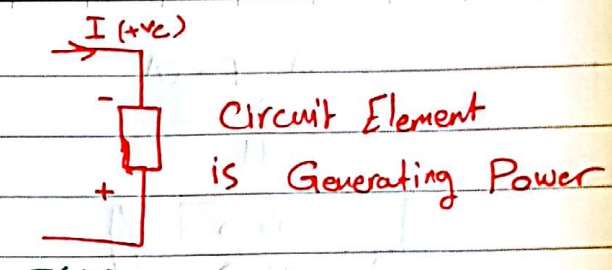 I (+ve)
-
Circuit Element
is Generating Power
+